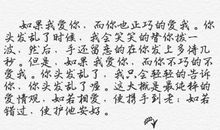 如果我爱你,而你也正巧的爱我。你
头发乱了时候,我会笑笑的替你拨一
拨,然后,手还留恋的在你发上多待几
秒。但是,如果我爱你,而你不巧的不
爱我。你头发乱了,我只会轻轻的告诉
你,你头发乱了哦。这大概是最纯粹的
爱情观,如若相爱,便携手到老;如若
错过,便护他安好。